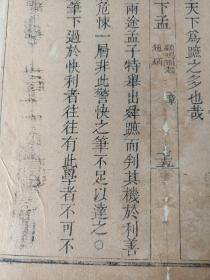 天下為蹠之多也哉
下孟
兩途孟子特舉出舜蹠而判其機於利善
危悚一層非此警快之筆不足以達之○
筆下過於快利者往往有此學者不可不